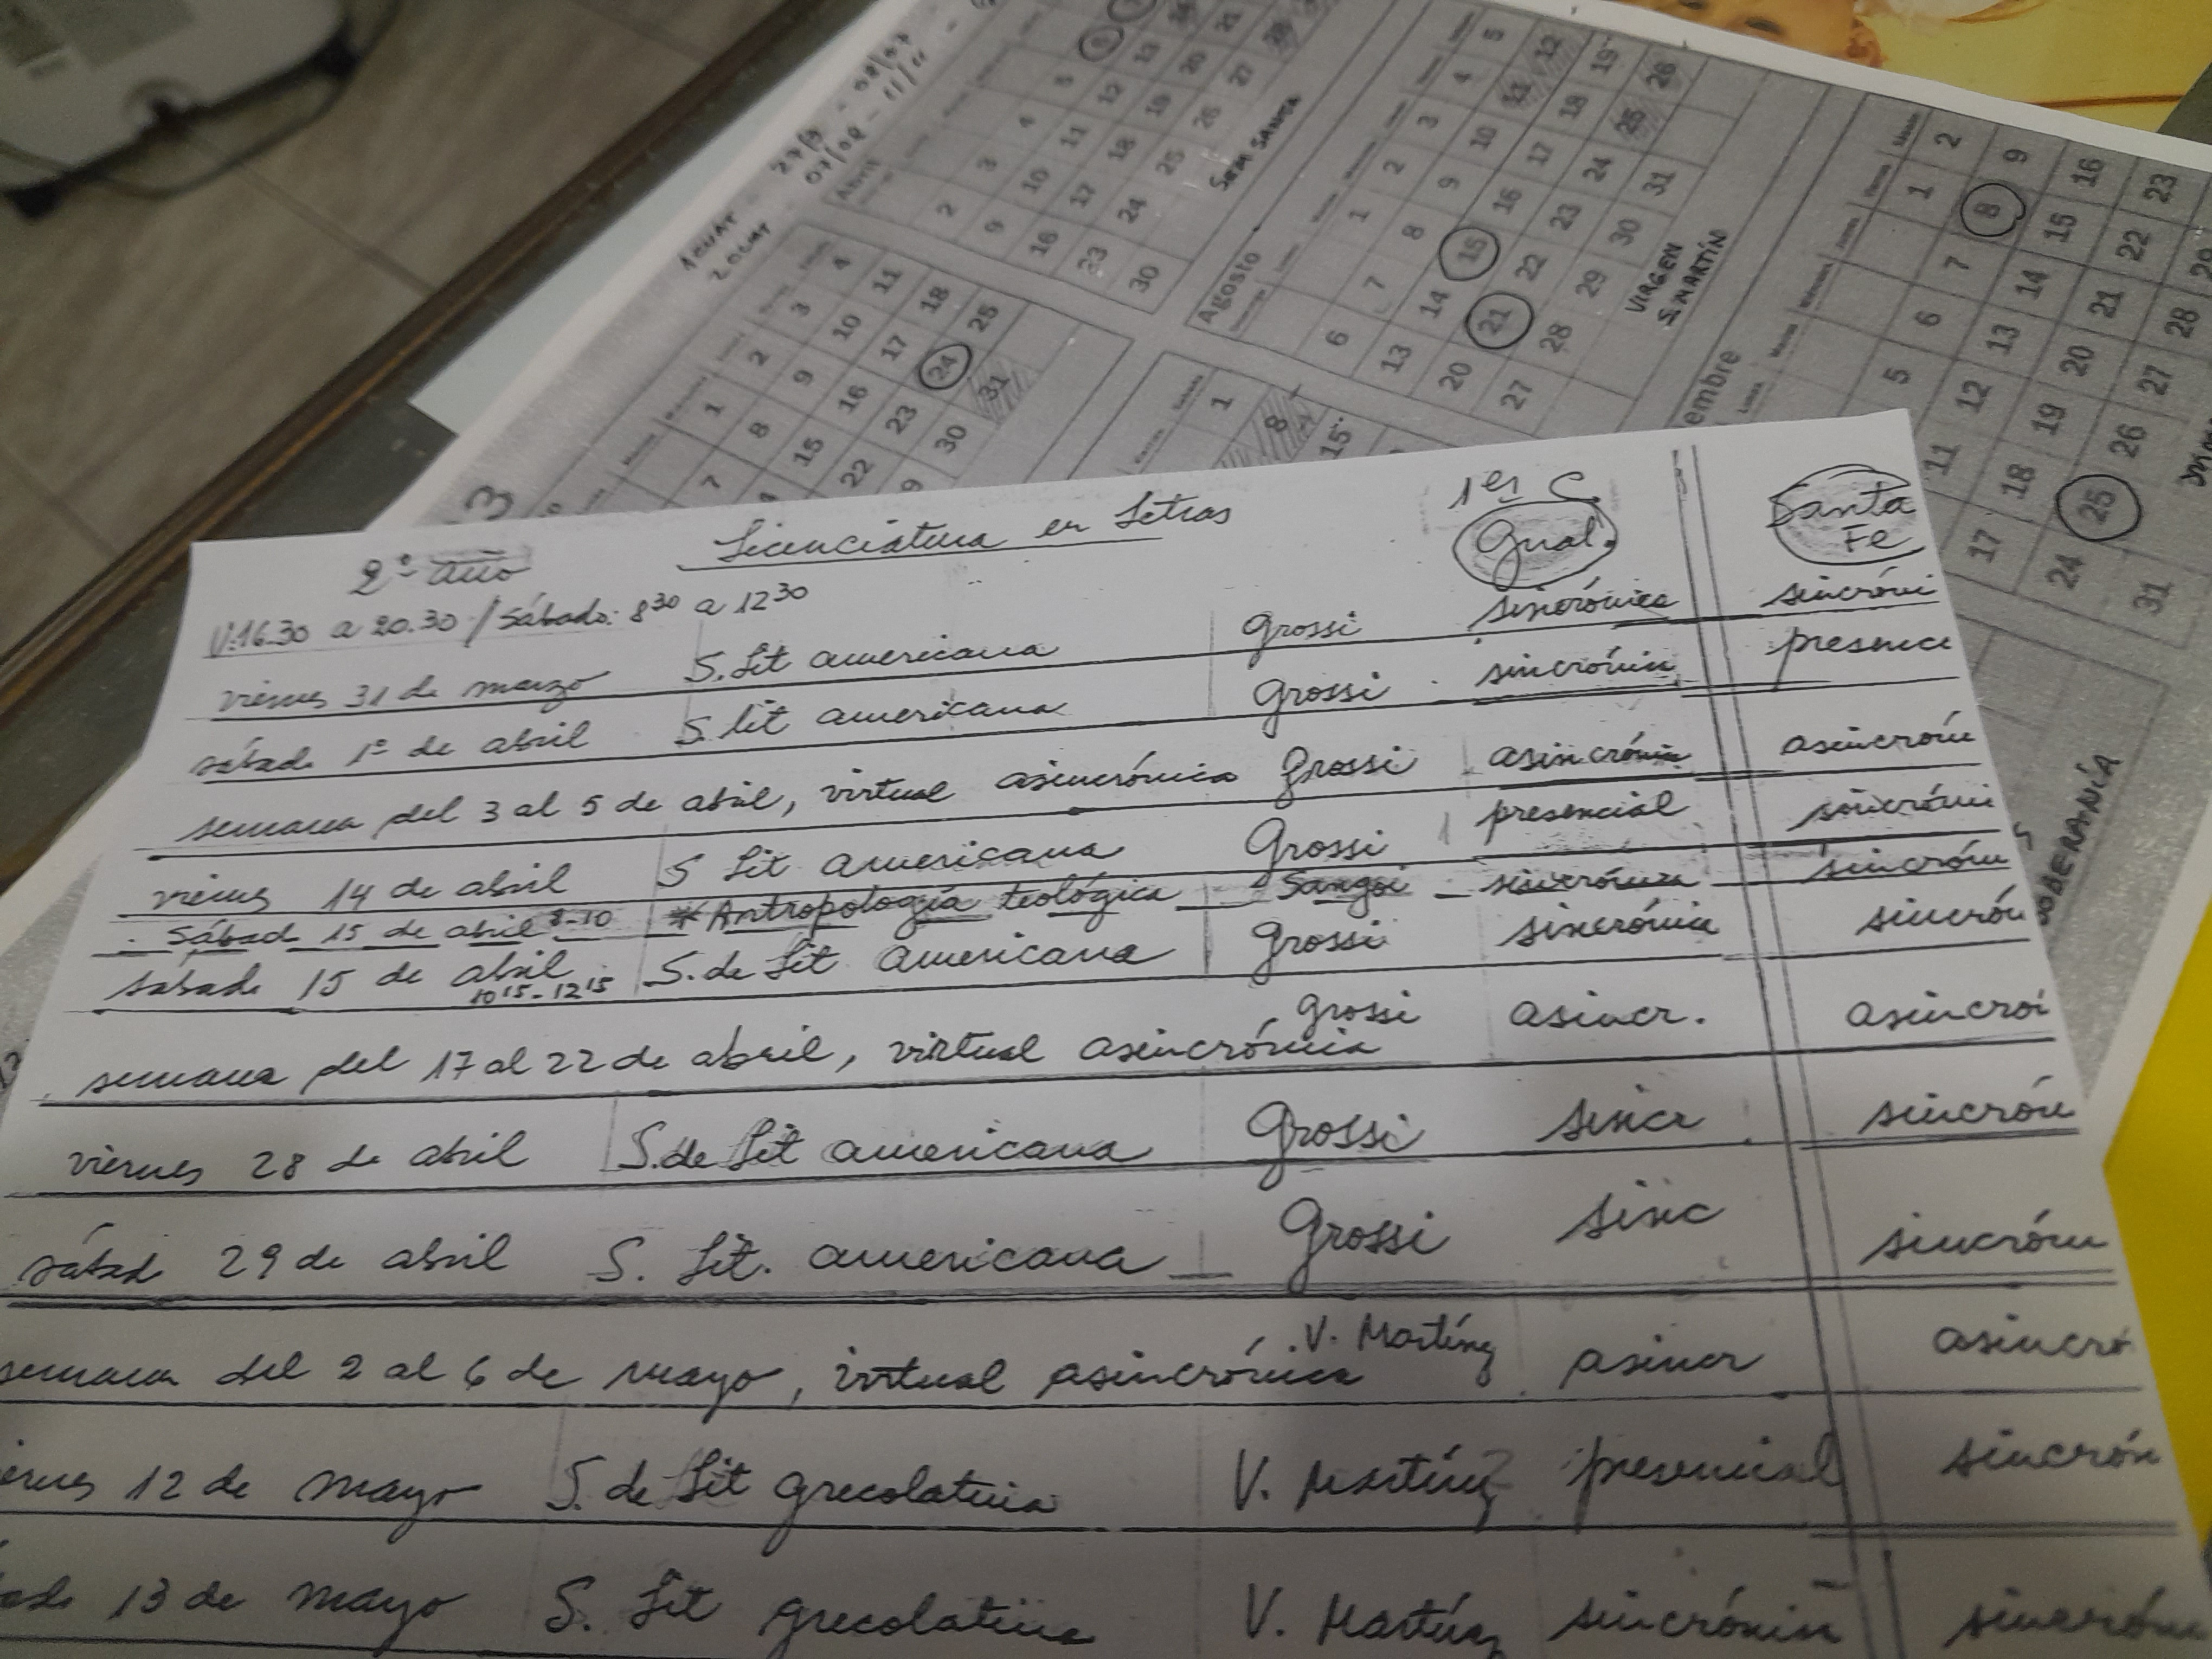 2º año Licenciatura en Letras 1er C. Gual. Santa Fe
V: 16.30 a 20.30 / Sábado: 8 30 a 12 30
viernes 31 de marzo S. Lit americana Grossi sincrónica sincróni
sábado 1º de abril S. lit americana Grossi sincrónica presenc
semana del 3 al 5 de abril, virtual asincrónica Grossi asincrónica asincrón
viernes 14 de abril S Lit americana Grossi presencial sincróni
Sábado 15 de abril 8-10 * Antropología teológica Sangoi sincrónica sincrón
sábado 15 de abril 10 15 - 12 15 S. de Lit americana Grossi sincrónica sincrón
semana del 17 al 22 de abril, virtual asincrónica Grossi asincr. asincrói
viernes 28 de abril S. de Lit americana Grossi sincr sincrón
sábado 29 de abril S. Lit. americana Grossi sinc sincrón
semana del 2 al 6 de mayo, virtual asincrónica V. Martínez asincr asincró
iernes 12 de mayo S. de Lit grecolatina V. Martínez presencial sincrón
13 de mayo S. Lit grecolatina V. Martínez sincrónica sincrón
1 CUAT - 27/3 - 08/07
2 CUAT 07/08 - 11/11
Abril
5 6
3 4 5 12 13 21
2 10 11 18 19 20 27
9 17 25 26
16 24
23
30
SEM SANTA
1 2 3 4
7 8 9 10 11
15 16 17 18
22 23 24 25
30 31
Agosto
1 2 3 4 5
6 7 8 9 10 11 12
13 14 15 16 17 18 19
20 21 22 23 24 25 26
27 28 29 30 31
VIRGEN
S. MARTÍN
1
8
15
embre
1 2
5 6 7 8 9
11 12 13 14 15 16
17 18 19 20 21 22 23
24 25 26 27 28 29
31
SOBERANÍA